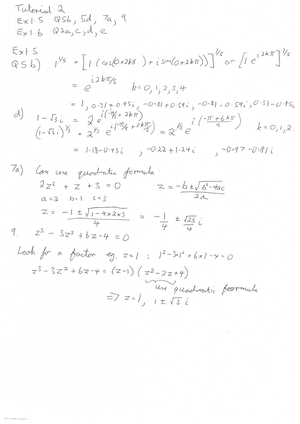 Tutorial 2
Ex 1.5 Q5b, 5d, 7a, 9.
Ex 1.6 Q2a, c, d, e
Ex 1.5
Q5b) 1^{1/5} = [1 (cos(0+2kπ) + i sin(0+2kπ))]^{1/5} or [1 e^{i2kπ}]^{1/5}
= e^{i2kπ/5} k=0,1,2,3,4
= 1, 0.31+0.95i, -0.81+0.59i, -0.81-0.59i, 0.31-0.95i
d) 1-√3i = 2 e^{i(-π/3+2kπ)}
(1-√3i)^{1/3} = 2^{1/3} e^{i(-π/9+2kπ/3)} = 2^{1/3} e^{i(-π+6kπ/9)} k=0,1,2.
= 1.18-0.43i, -0.22+1.24i, -0.97-0.81i
7a) Can use quadratic formula
2z² + z + 3 = 0 z = -b±√b²-4ac / 2a
a=2 b=1 c=3
z = -1±√1-4×2×3 / 4 = -1/4 ± √23/4 i
9. z³-3z²+6z-4=0
Look for a factor eg. z=1; 1³-3×1²+6×1-4=0
z³-3z²+6z-4 = (z-1)(z²-2z+4)
use quadratic formula
⇒ z=1, 1±√3i